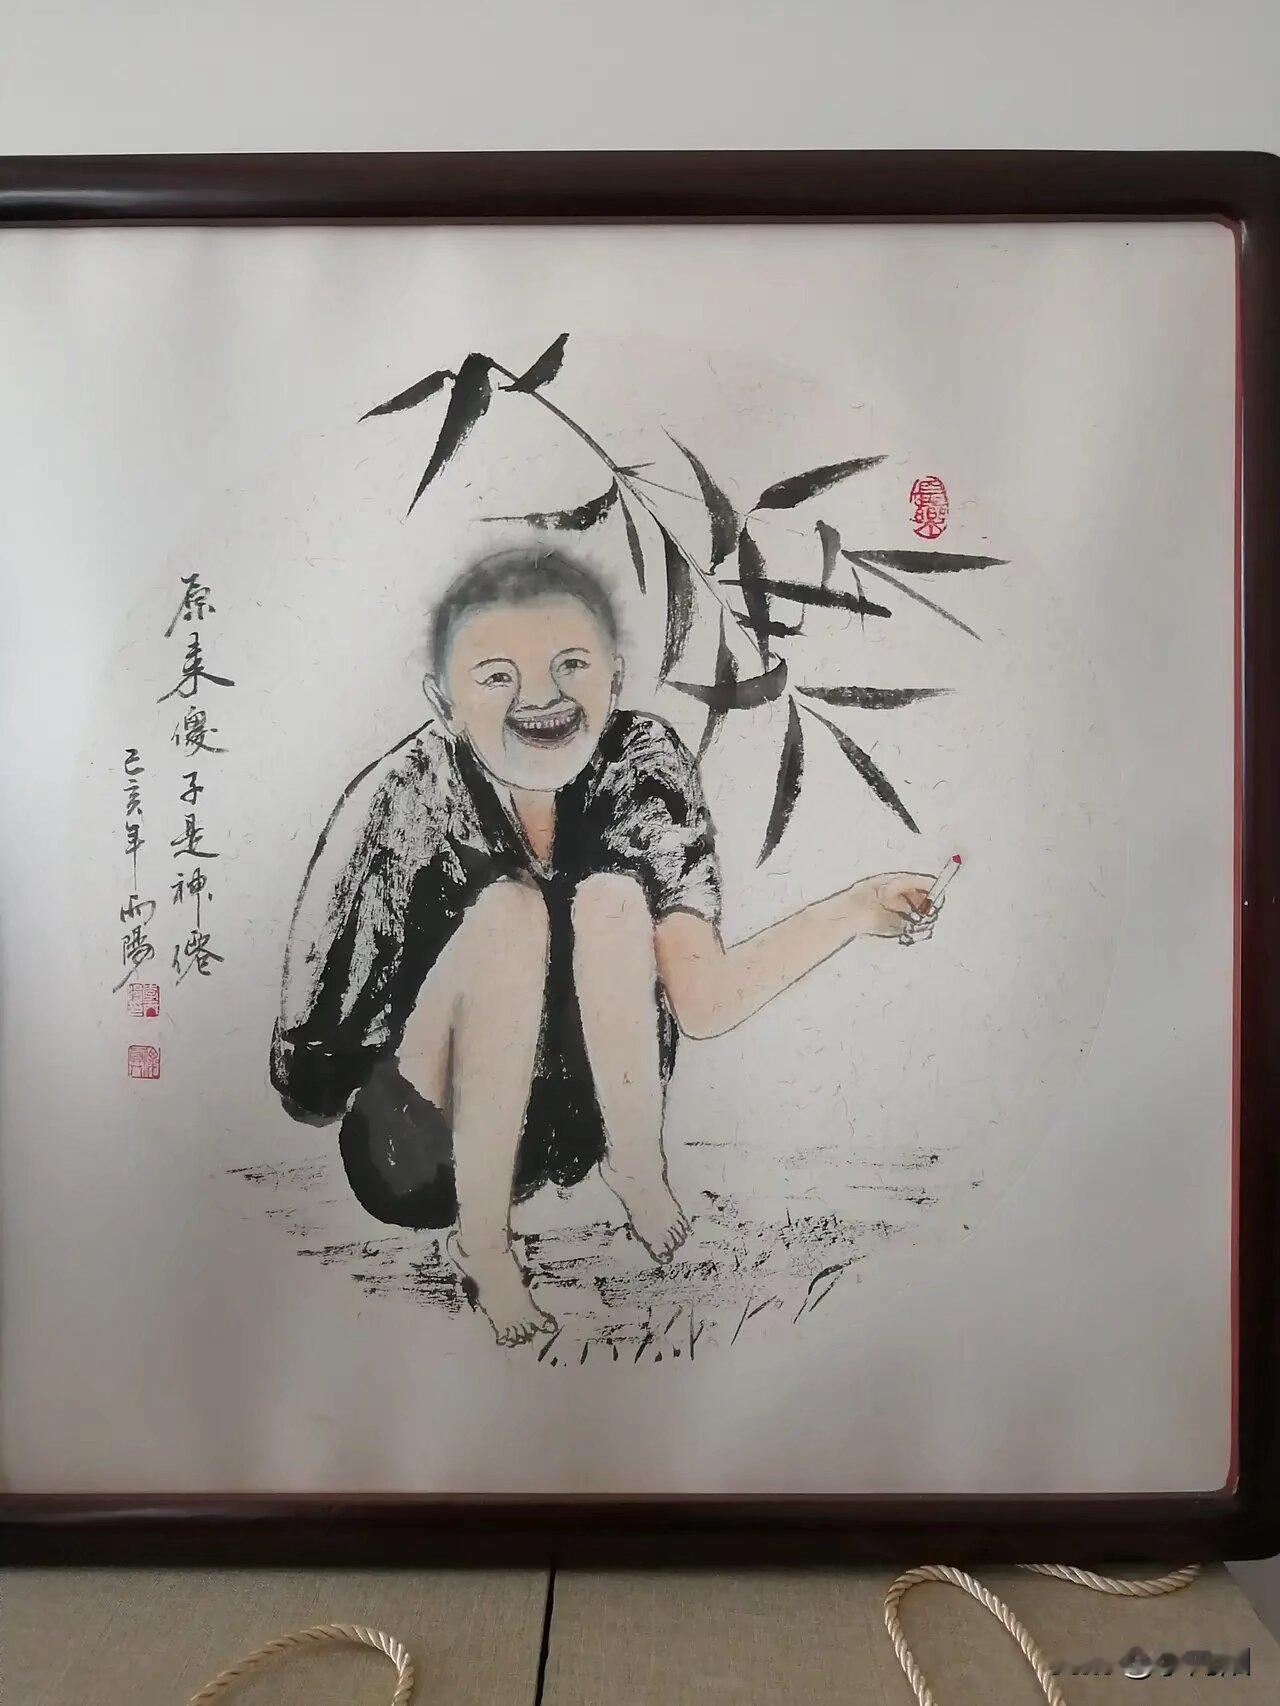 原来傻子是神僊
己亥年雨阳